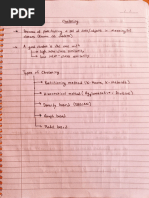 Clustering
→ Process of partitioning a set of data/objects in meaningful
classes (known as clusters).
→ A good cluster is the one with
high intra-class similarity
low inter-class similarity
Types of Clustering
Partitioning method (k-means, k-medoids)
Hierarchical method (Agglomerative, Divisive)
Density based (DBSCAN)
Graph based
Model based